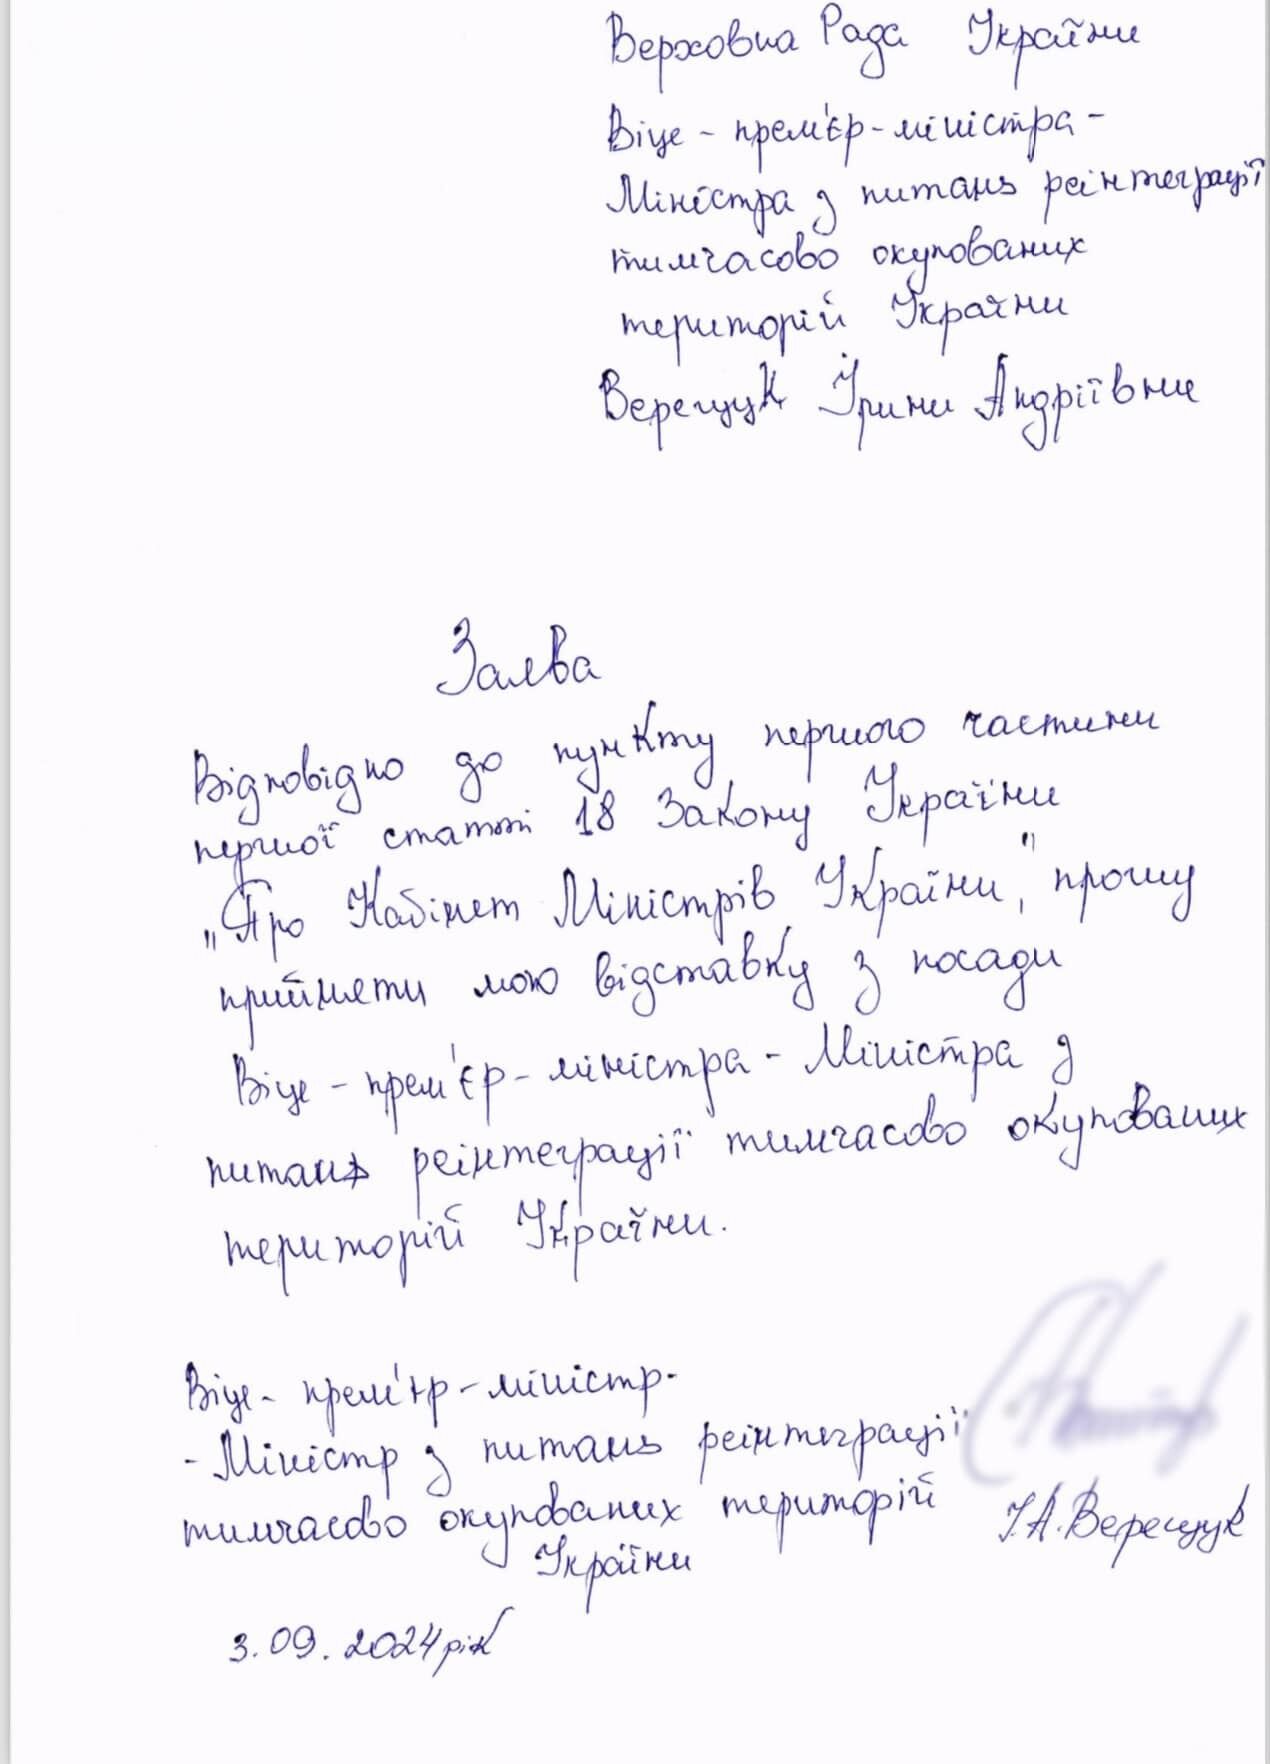 Верховна Рада України
Віце-прем'єр-міністра-
Міністра з питань реінтеграції
тимчасово окупованих
територій України
Верещук Ірини Андріївни
Заява
Відповідно до пункту першого частини
першої статті 18 Закону України
„Про Кабінет Міністрів України", прошу
прийняти мою відставку з посади
Віце-прем'єр-міністра - Міністра з
питань реінтеграції тимчасово окупованих
територій України.
Віце-прем'єр-міністр-
-Міністр з питань реінтеграції
тимчасово окупованих територій
України
І.А.Верещук
3.09.2024рік